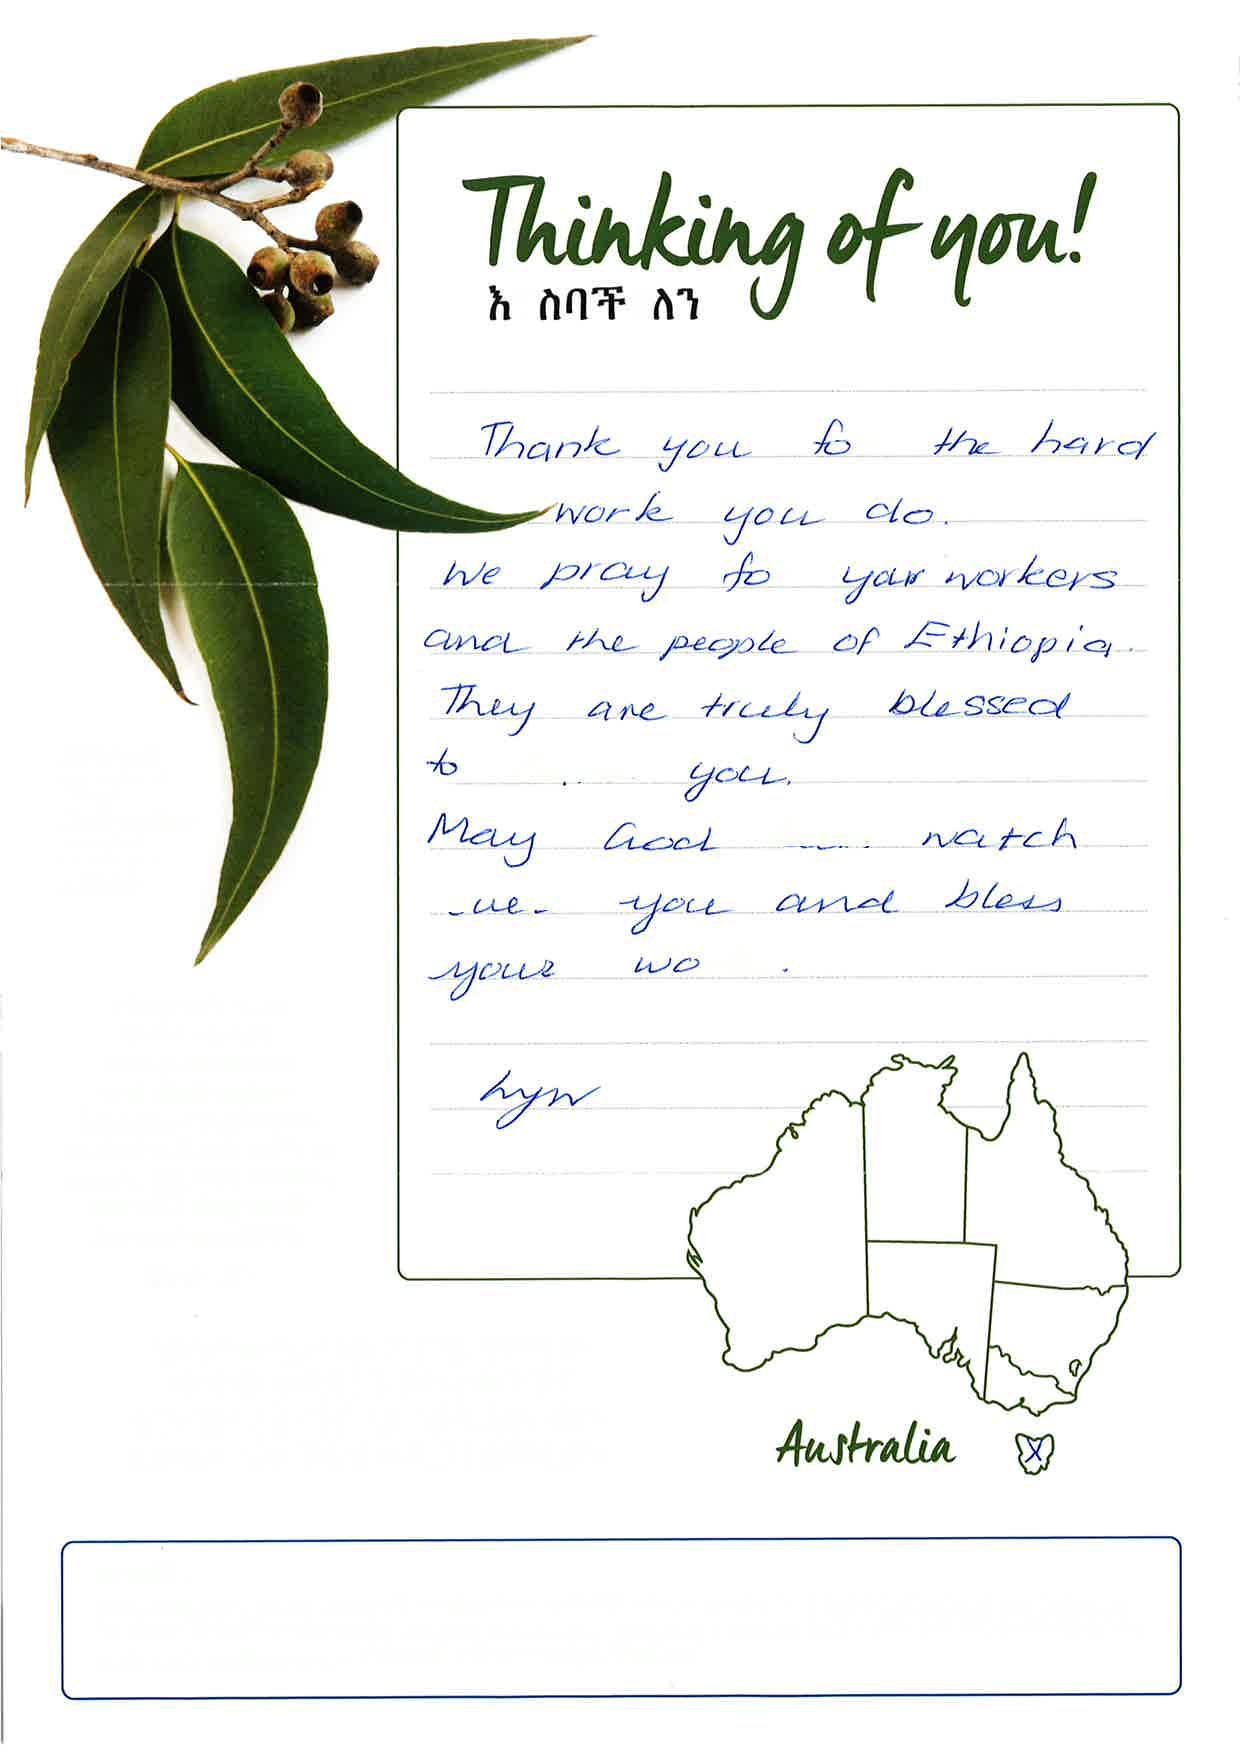 Thinking of you!
እ ስባች ለን
Thank you fo the hard
work you do.
We pray fo your workers
and the people of Ethiopia.
They are truly blessed
to you.
May God watch
you and bless
your wo .
Lyn
Australia
X